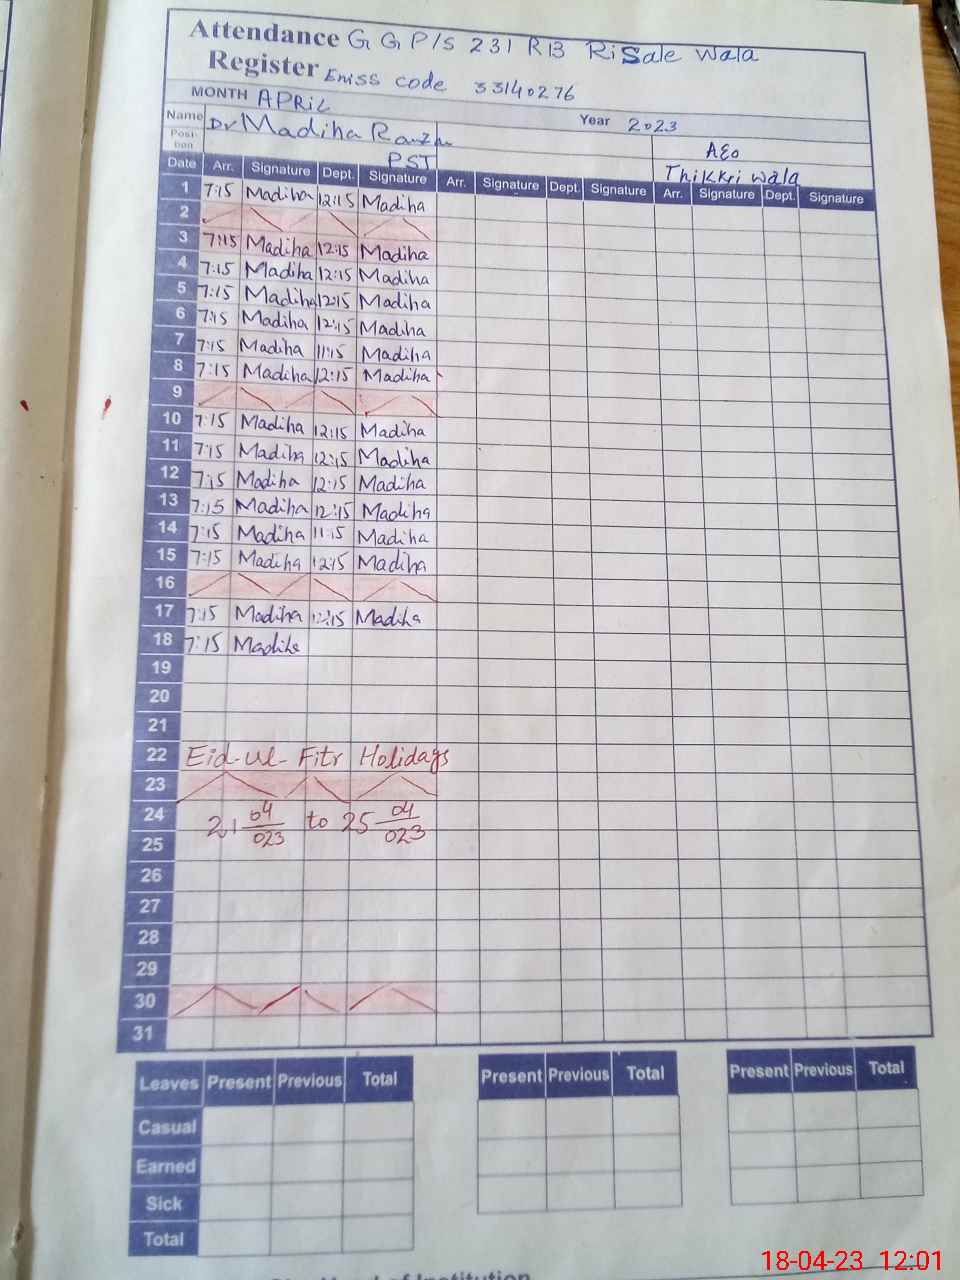 Attendance G G P/S 231 RB RiSale wala
Register Emiss code 33140276
MONTH APRIL
Year 2023
Name Dr Madiha
Posi-
tion PST
AEO
Thikkri wala
Date Arr. Signature Dept. Signature Arr. Signature Dept. Signature Arr. Signature Dept. Signature
1 7:15 Madiha 12:15 Madiha
2
3 7:15 Madiha 12:15 Madiha
4 7:15 Madiha 12:15 Madiha
5 7:15 Madiha 12:15 Madiha
6 7:15 Madiha 12:15 Madiha
7 7:15 Madiha 11:15 Madiha
8 7:15 Madiha 12:15 Madiha
9
10 7:15 Madiha 12:15 Madiha
11 7:15 Madiha 12:15 Madiha
12 7:15 Madiha 12:15 Madiha
13 7:15 Madiha 12:15 Madiha
14 7:15 Madiha 11:15 Madiha
15 7:15 Madiha 12:15 Madiha
16
17 7:15 Madiha 12:15 Madiha
18 7:15 Madiha
19
20
21
22 Eid-ul-Fitr Holidays
23
24 21 04/023 to 25 04/023
25
26
27
28
29
30
31
Leaves Present Previous Total Present Previous Total Present Previous Total
Casual
Earned
Sick
Total
of Institution
18-04-23 12:01